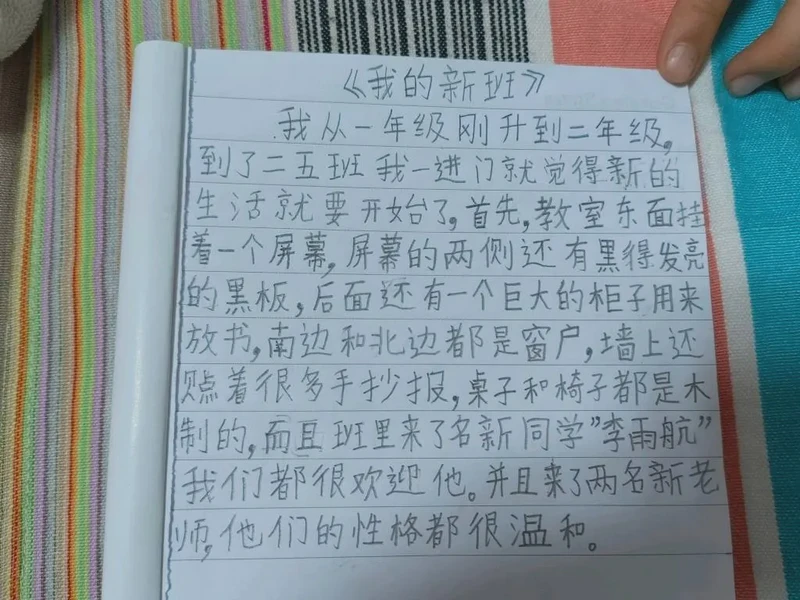 《我的新班》
我从一年级刚升到二年级,
到了二五班我一进门就觉得新的
生活就要开始了,首先,教室东面挂
着一个屏幕,屏幕的两侧还有黑得发亮
的黑板,后面还有一个巨大的柜子用来
放书,南边和北边都是窗户,墙上还
贴着很多手抄报,桌子和椅子都是木
制的,而且班里来了名新同学"李雨航"
我们都很欢迎他。并且来了两名新老
师,他们的性格都很温和。